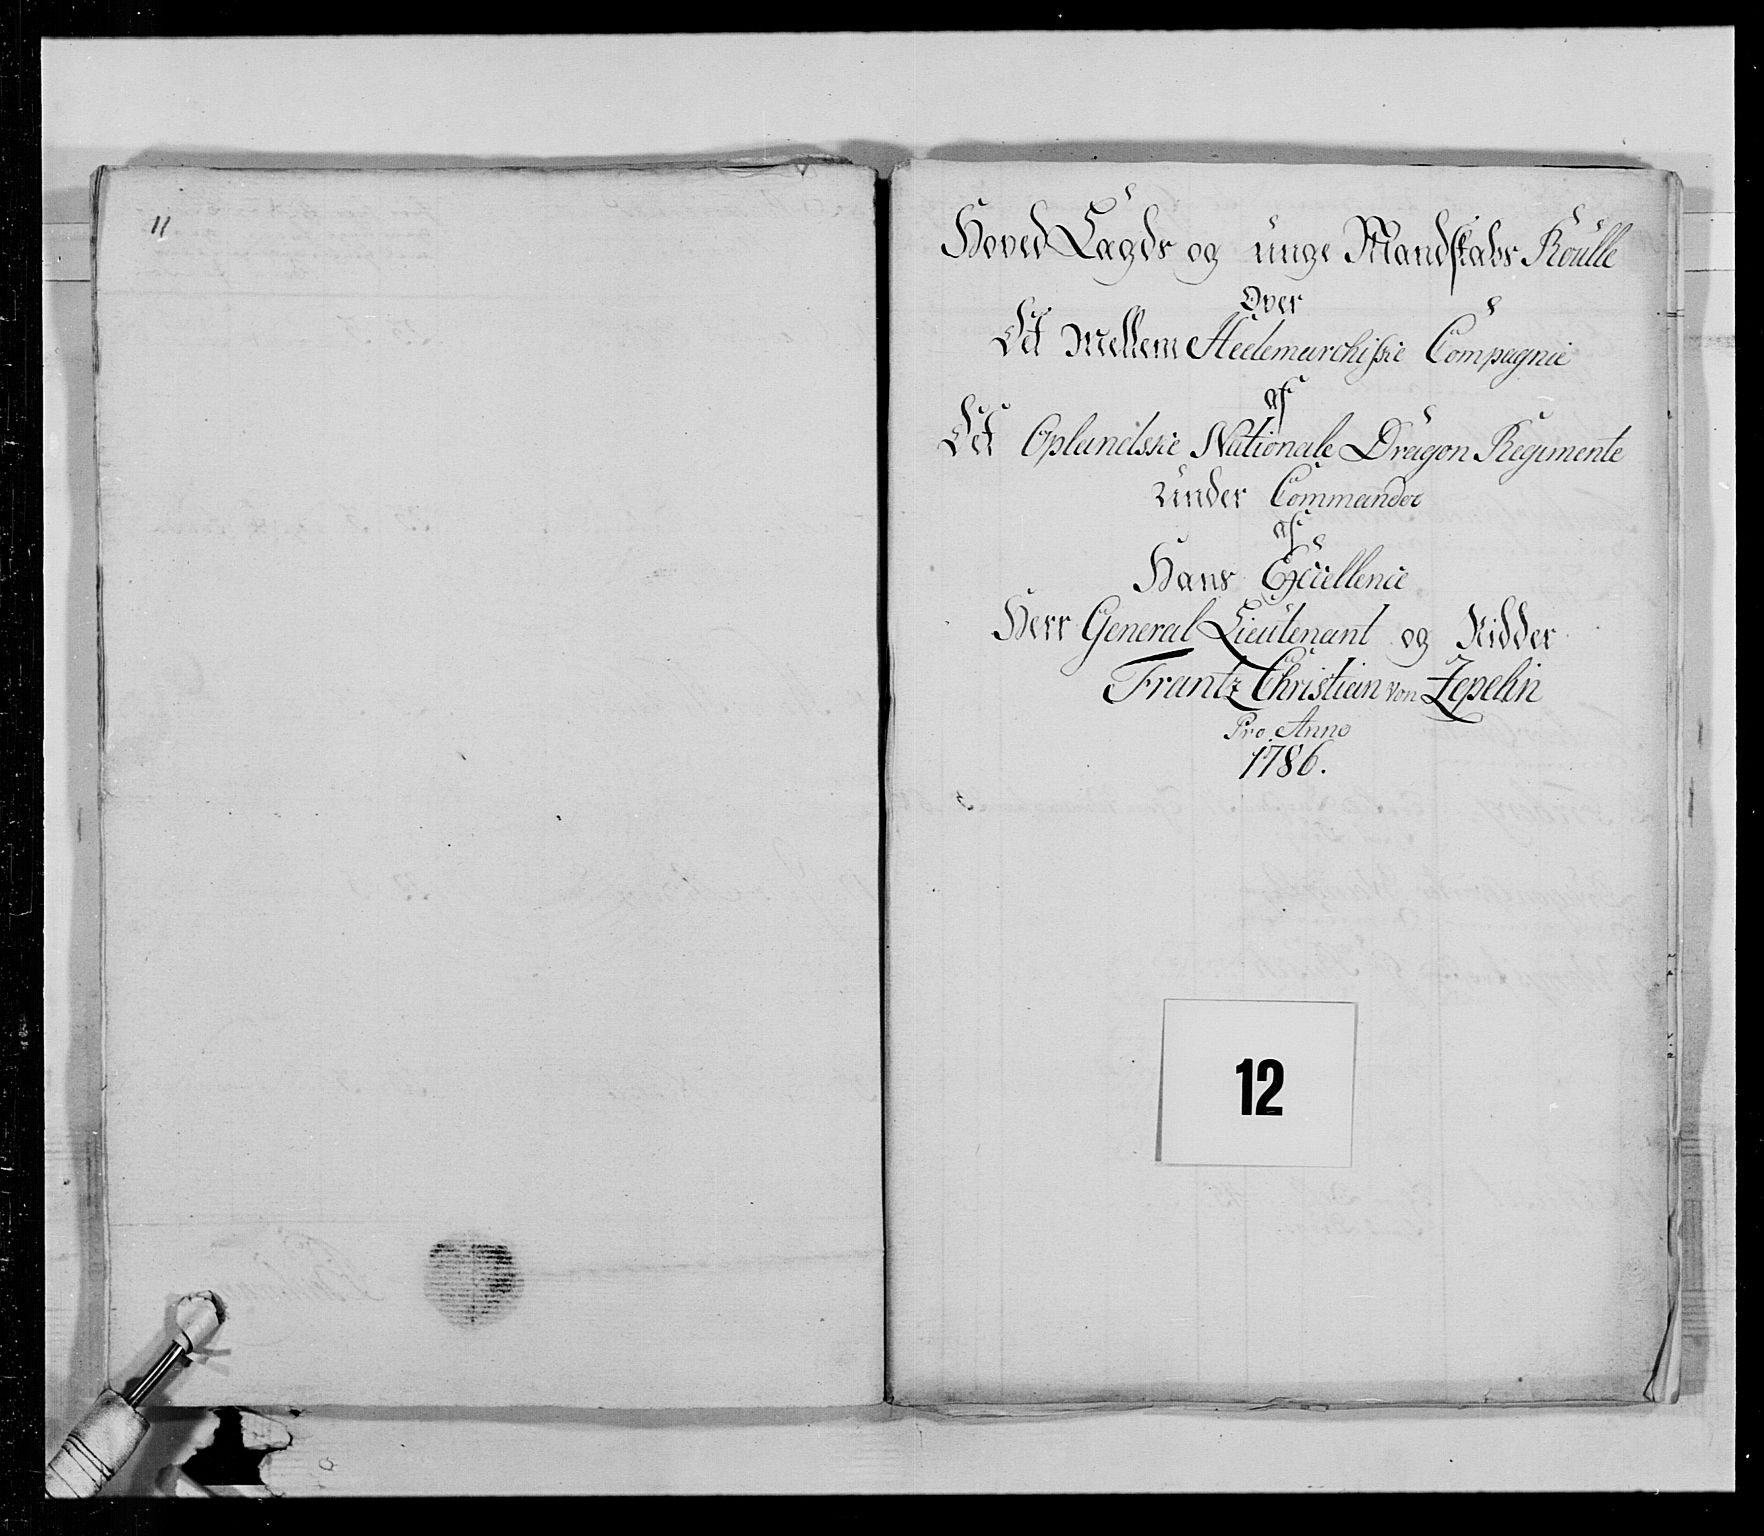 11
Hoved Lægds og unge Mandskabs Roulle
Over
Det Mellem Hedemarchiske Compagnie
af
Det Oplandske Nationale Dragon Regimente
under Commandoe
af
Hans Excellence
Herr General Lieutenant og Ridder
Frantz Christian von Zepelin
Pro Anno
1786.
12